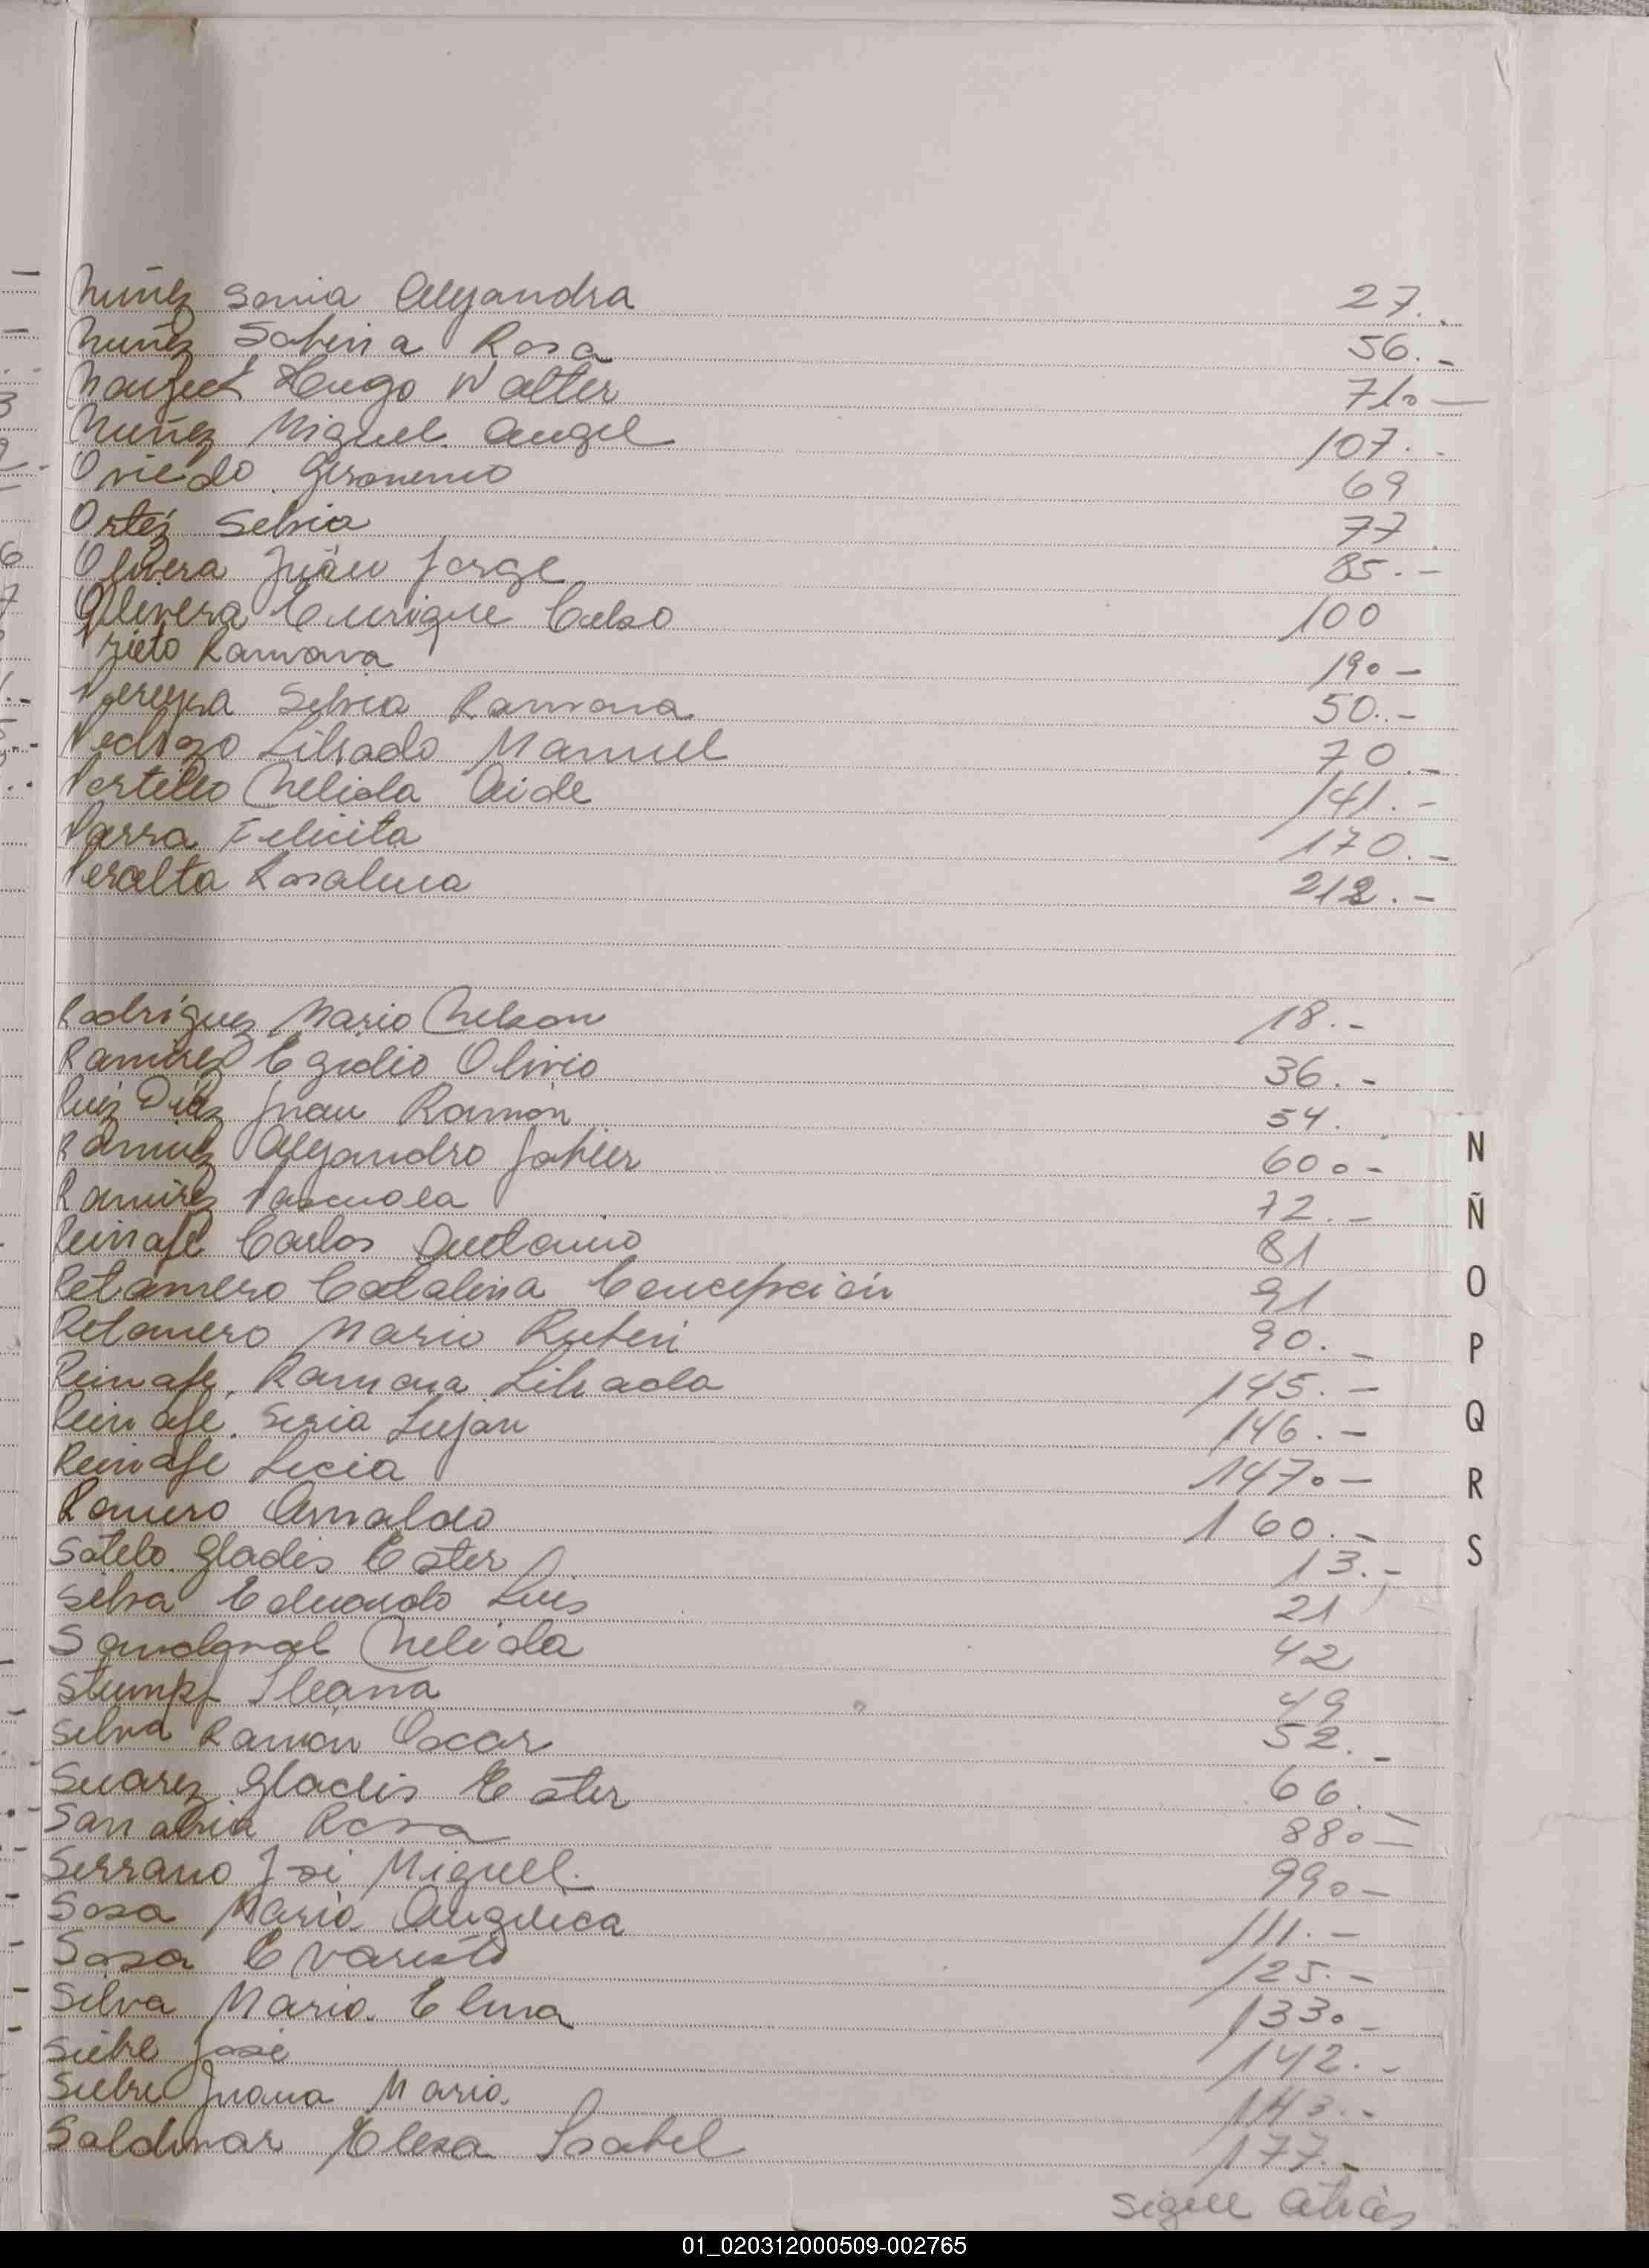 Nuñez Sonia Alejandra 27.-
Nuñez Sabina Rosa 56.-
Hugo Walter 71.-
Nuñez Miguel Angel 107.-
Oviedo Geronimo 69
Ortiz Selvia 77
Olivera Juan Jorge 85.-
Ollivera Enrique Celso 100
Prieto Ramona 190-
Pereyra Selvia Ramona 50.-
Pedrozo Librado Manuel 70.-
Portillo Nelida Aide 141.-
Parra Felicita 170.-
Peralta Rosalina 212.-
Rodriguez Mario Nelson 18.-
Ramirez Egidio Olivio 36.-
Ruiz Diaz Juan Ramón 54.
Ramirez Alejandro Jabier 60.-
Ramirez Pascuala 72.-
Reinafe Carlos Antonio 81
Retamero Catalina Concepción 91
Retamero Mario Ruben 90.-
Reinafe, Ramona Librada 145.-
Reinafe. Lujan 146.-
Reinafe Lucia 147.-
Romero Arnaldo 160.-
Sotelo Gladis Ester 13.-
Silva Eduardo Luis 21
Sandoval Nelida 42
Stumpf Ileana 49
Selva Ramón Oscar 52.-
Suarez Gladis Ester 66.-
Sanabria Rosa 88.-
Serrano José Miguel. 99.-
Sosa Maria Angelica 111.-
Sosa Evaristo 125.-
Silva Maria Elina 133.-
Siebre José 142.-
Siebre Juana Maria. 143.-
Saldivar Elesa Isabel 177.-
sigue atrás
N
Ñ
O
P
Q
R
S
01_020312000509-002765